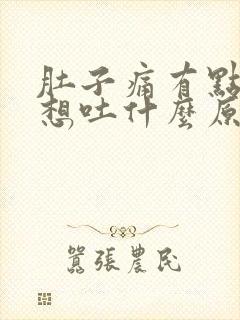 肚子痛有點
想吐什麼原
囂張農民